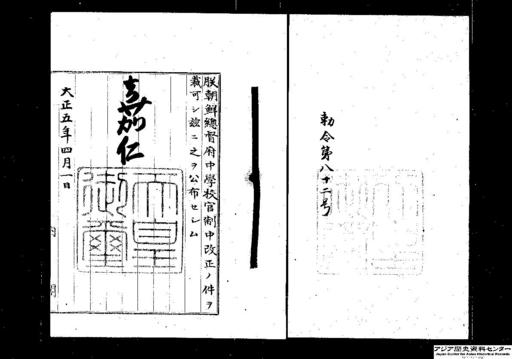 勅令第八十二号
朕朝鮮總督府中學校官制中改正ノ件ヲ
裁可シ茲ニ之ヲ公布セシム
嘉仁
天皇御璽
大正五年四月一日
内閣
アジア歴史資料センター
Japan Center for Asian Historical Records